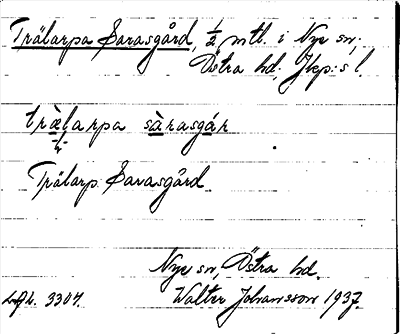 Trälarpa Sarasgård, 1/2 mtl. i Nye sn,
Östra hd, Jkp:s l.
trälarpa sàrasgár
Trälarp. Sarasgård
Nye sn, Östra hd.
3304. Walter Johansson 1937.